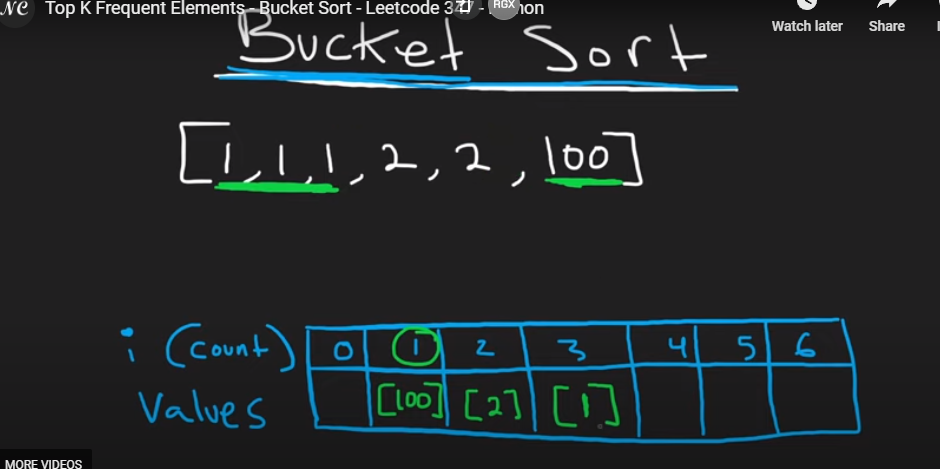 NC Top K Frequent Elements - Bucket Sort - Leetcode 347 - RGX hon
Watch later Share
Bucket Sort
[1,1,1,2,2,100]
i (count) 0 1 2 3 4 5 6
Values [100] [2] [1]
MORE VIDEOS